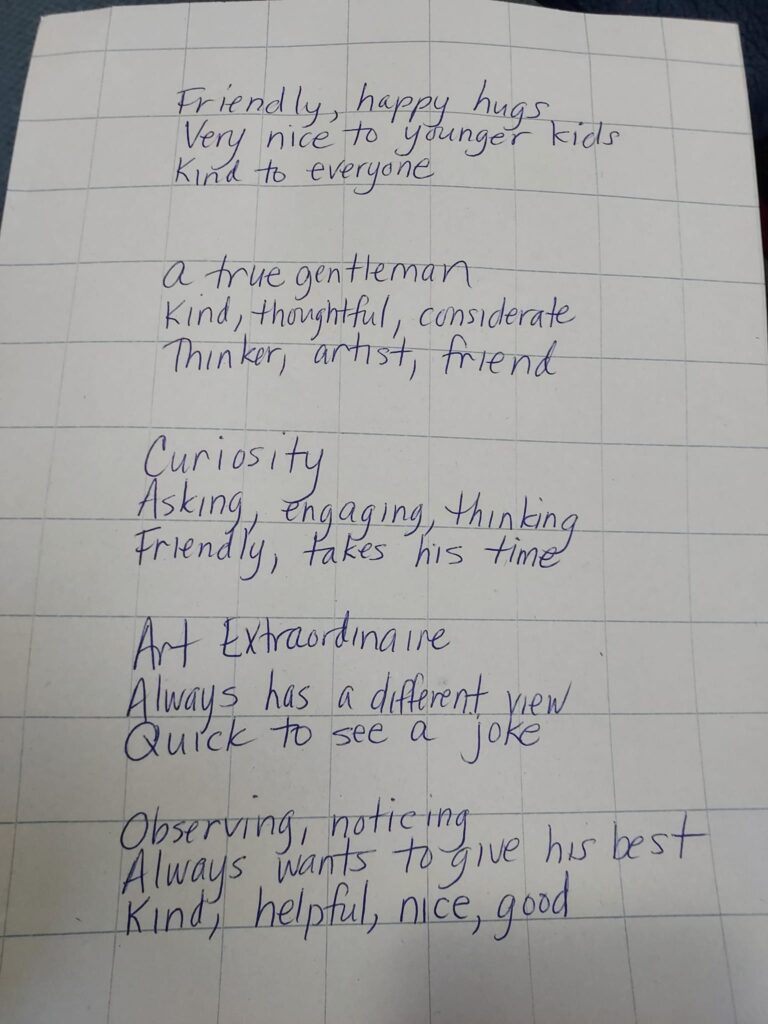 Friendly, happy hugs
Very nice to younger kids
Kind to everyone
a true gentleman
Kind, thoughtful, considerate
Thinker, artist, friend
Curiosity
Asking, engaging, thinking
Friendly, takes his time
Art Extraordinaire
Always has a different view
Quick to see a joke
Observing, noticing
Always wants to give his best
Kind, helpful, nice, good